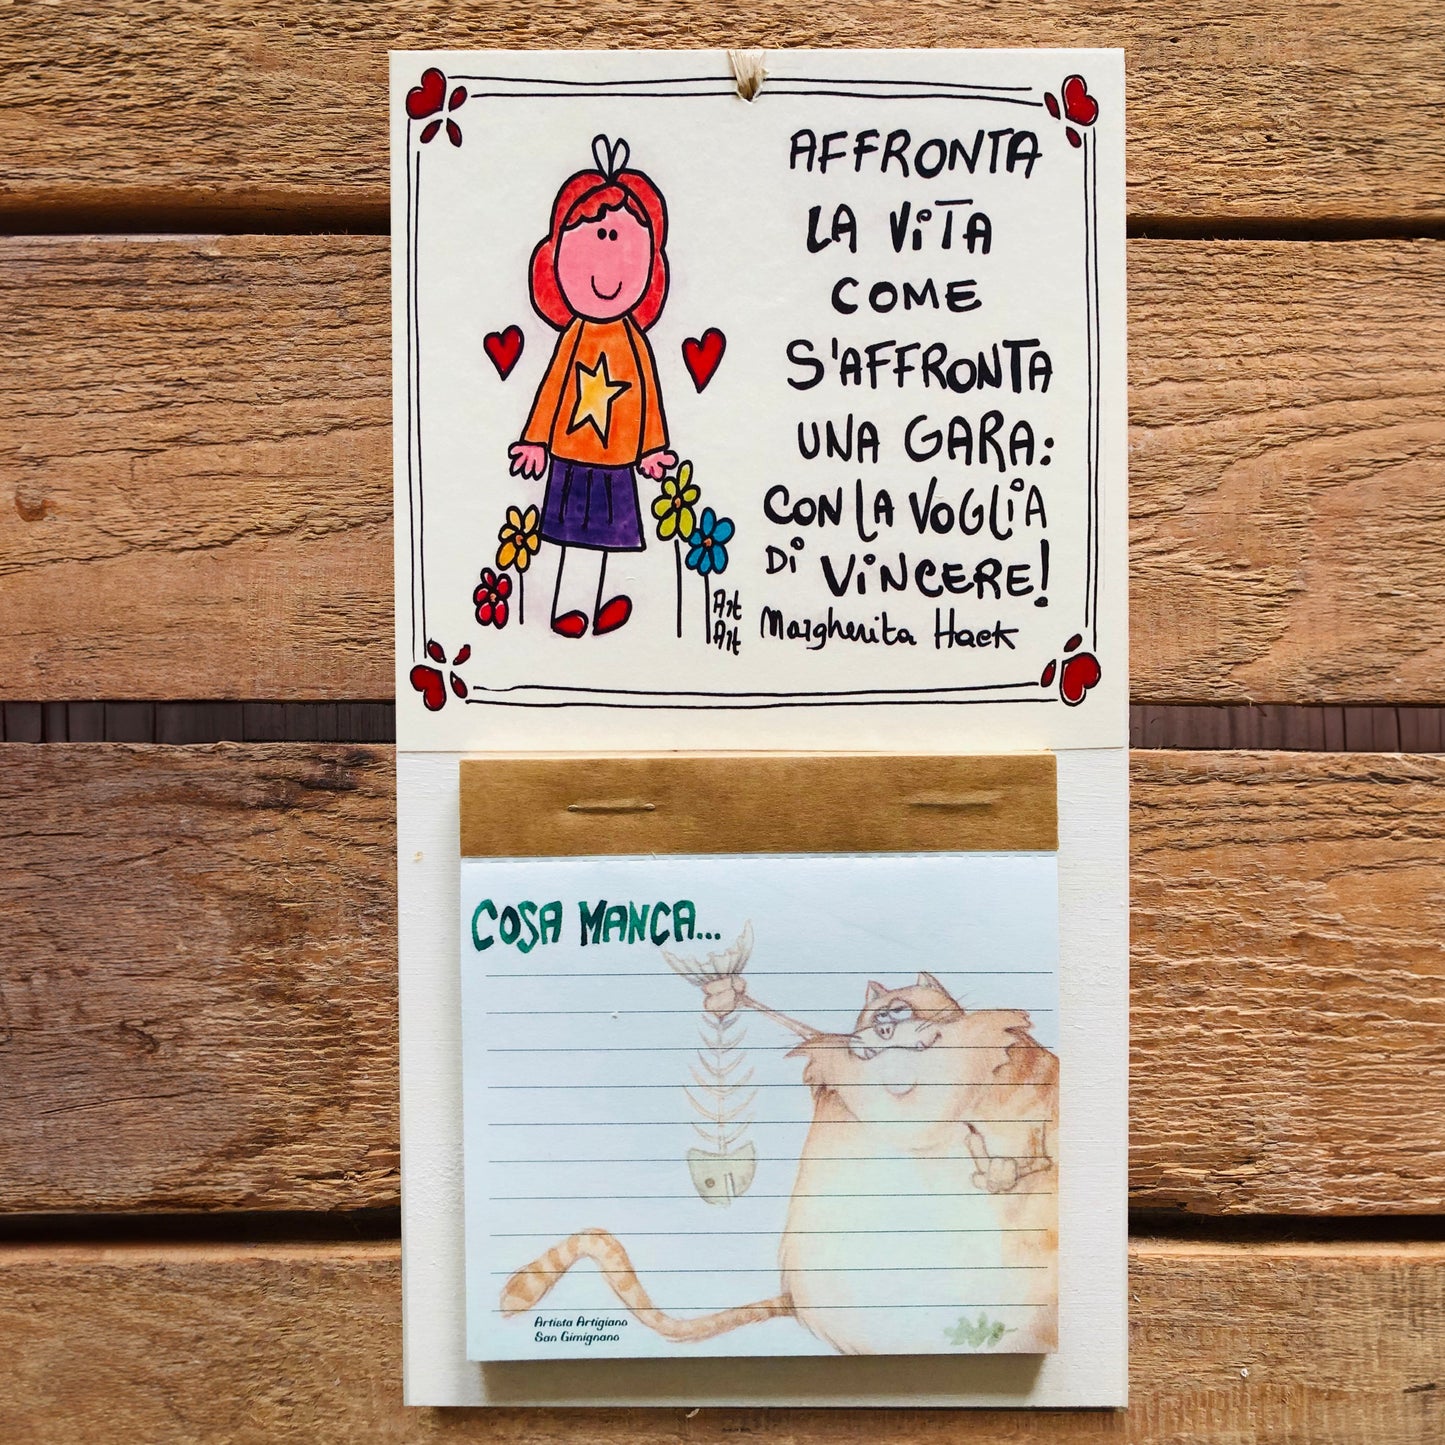 AFFRONTA
LA ViTA
COME
S'AFFRONTA
UNA GARA:
CON LA VOGLIA
Di ViNCERE!
Margherita Hack
Art
Art
COSA MANCA...
Artista Artigiano
San Gimignano